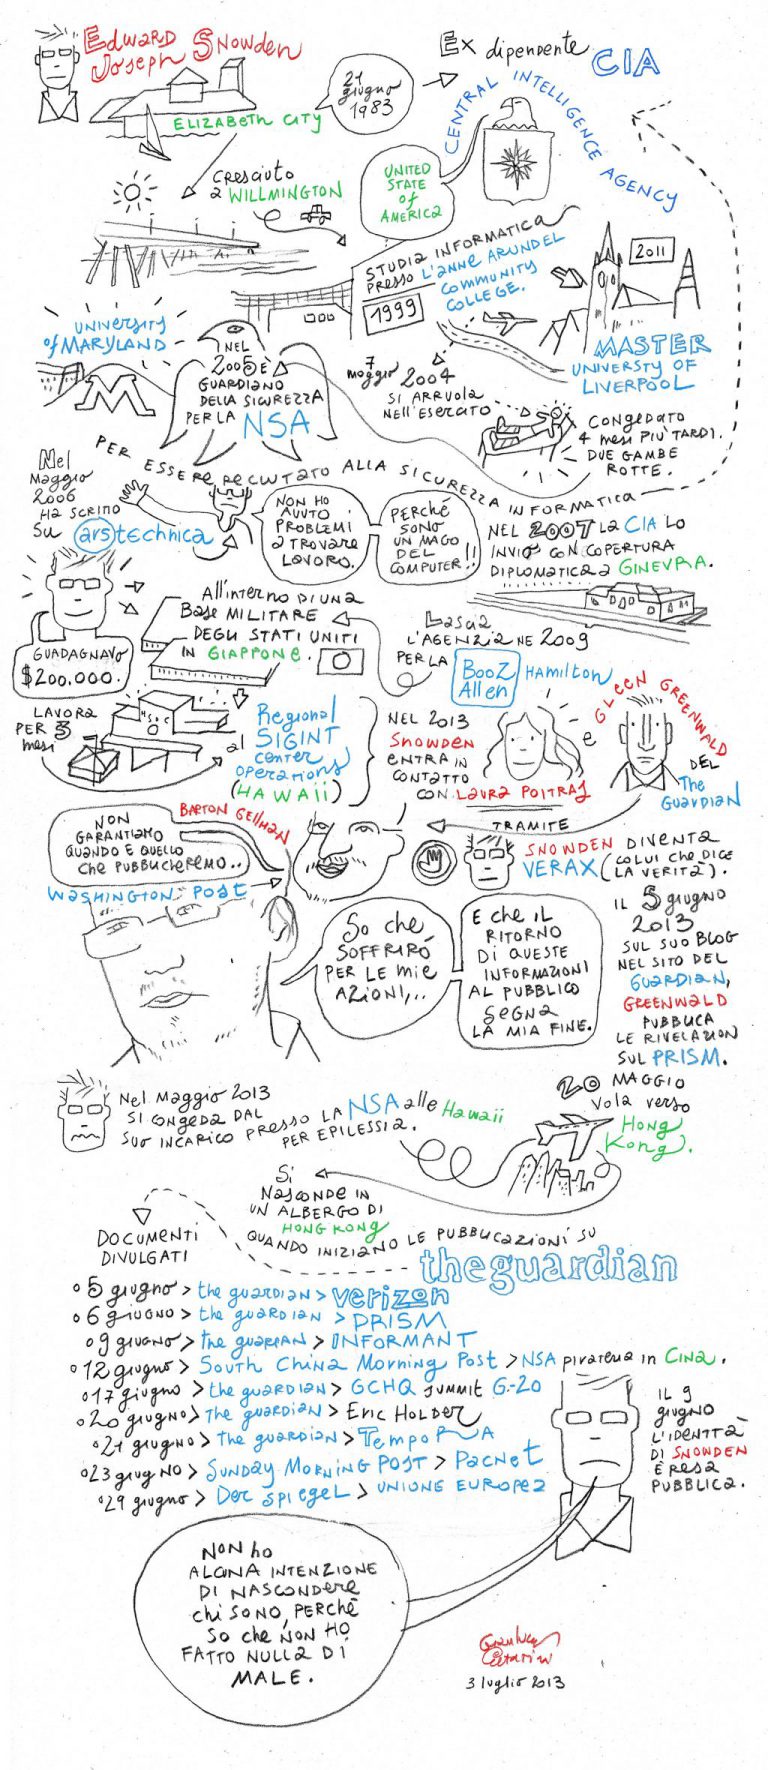 Edward
Joseph Snowden
21
giugno
1983
Elizabeth City
Ex dipendente CIA
CENTRAL INTELLIGENCE AGENCY
UNITED
STATE
of
AMERICA
cresciuto
a WILLMINGTON
STUDIA INFORMATICA
PRESSO L'ANNE ARUNDEL
COMMUNITY
COLLEGE.
1999
2011
MASTER
UNIVERSTY OF
LIVERPOOL
UNIVERSITY
of MARYLAND
M
NEL
2005 È
GUARDIANO
DELLA SICUREZZA
PER LA NSA
7
maggio 2004
SI ARRUOLA
NELL'ESERCATO
CONGEDATO
4 mesi PIÙ TARDI.
DUE GAMBE
ROTTE.
PER ESSERE RECLUTATO ALLA SICUREZZA INFORMATICA
Nel
Maggio
2006
HA SCRITTO
SU arstechnica
NON HO
AVUTO
PROBLEMI
A TROVARE
LAVORO.
PERCHÉ
SONO
UN MAGO
DEL
COMPUTER!!
NEL 2007 LA CIA LO
INVIÒ CON COPERTURA
DIPLOMATICA a GINEVRA.
GUADAGNAVO
$200.000.
All'INTERNO DI UNA
BASE MILITARE
DEGLI STATI UNITI
IN GIAPPONE.
Lascia
L'AGENZIA NE 2009
PER LA Booz
Allen HAMILTON
LAVORA
PER 3
mesi
al Regional
SIGINT
center
operations
(HAWAII)
NEL 2013
SNOWDEN
ENTRA IN
CONTATTO
CON LAURA POITRAS
e GLEEN GREENWALD
DEL
The
GUARDIAN
TRAMITE
NON
GARANTIAMO
QUANDO E QUELLO
che PUBBLICHEREMO..
BARTON GELLMAN
WASHINGTON POST
SNOWDEN DIVENTA
VERAX (COLUI CHE DICE
LA VERITÀ).
So che
SOFFRIRÒ
PER LE MIE
AZIONI,...
E CHE IL
RITORNO
DI QUESTE
INFORMAZIONI
AL PUBBLICO
SEGNA
LA MIA FINE.
IL 5 giugno
2013
SUL SUO BLOG
NEL SITO DEL
GUARDIAN,
GREENWALD
PUBBLICA
LE RIVELAZION
SUL PRISM.
Nel Maggio 2013
SI CONGEDA DAL
SUO INCARICO PRESSO LA NSA alle Hawaii
PER EPILESSIA.
20 MAGGIO
Vola verso
HONG
KONG.
Si
NASCONDE IN
UN ALBERGO DI
HONG KONG
QUANDO INIZIANO LE PUBBLICAZIONI SU
theguardian
DOCUMENTI
DIVULGATI
5 giugno > the guardian > verizon
6 giugno > the guardian > PRISM
9 giugno > the guardian > INFORMANT
12 giugno > South China Morning Post > NSA pirateria in Cina.
17 giugno > the guardian > GCHQ summit G-20
20 giugno > The guardian > Eric HOLDER
21 giugno > The guardian > TEMPORA
23 giugno > SUNDAY MORNING POST > PACNET
29 giugno > Der spiegel > UNIONE EUROPEA
IL 9
giugno
L'IDENTITÀ
DI SNOWDEN
È RESA
PUBBLICA.
NON ho
ALCUNA INTENZIONE
DI NASCONDERE
chi SONO, PERCHÉ
SO che NON HO
FATTO NULLA DI
MALE.
3 luglio 2013